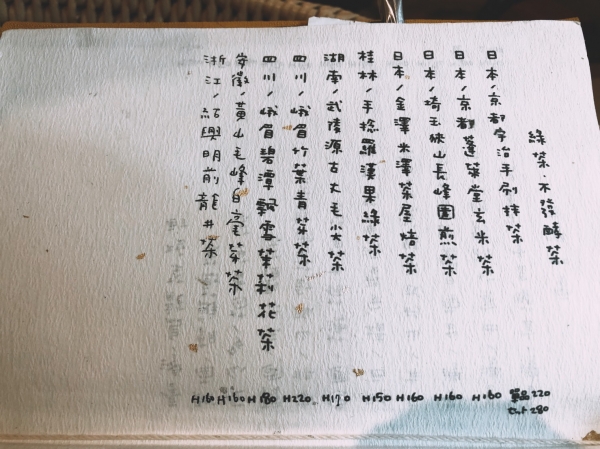 綠茶·不發酵茶
日本/京都宇治手刷抹茶
單品220
セット280
日本/京都蓬萊堂玄米茶 H160
日本/埼玉狹山長峰園煎茶 H160
日本/金澤米澤茶屋焙茶 H160
桂林/手捻羅漢果綠茶 H150
湖南/武陵源古丈毛尖茶 H170
四川/峨眉竹葉青芽茶 H220
四川/峨眉碧潭飄雪茉莉花茶 H180
安徽/黃山毛峰白毫芽茶 H160
浙江/紹興明前龍井茶 H160